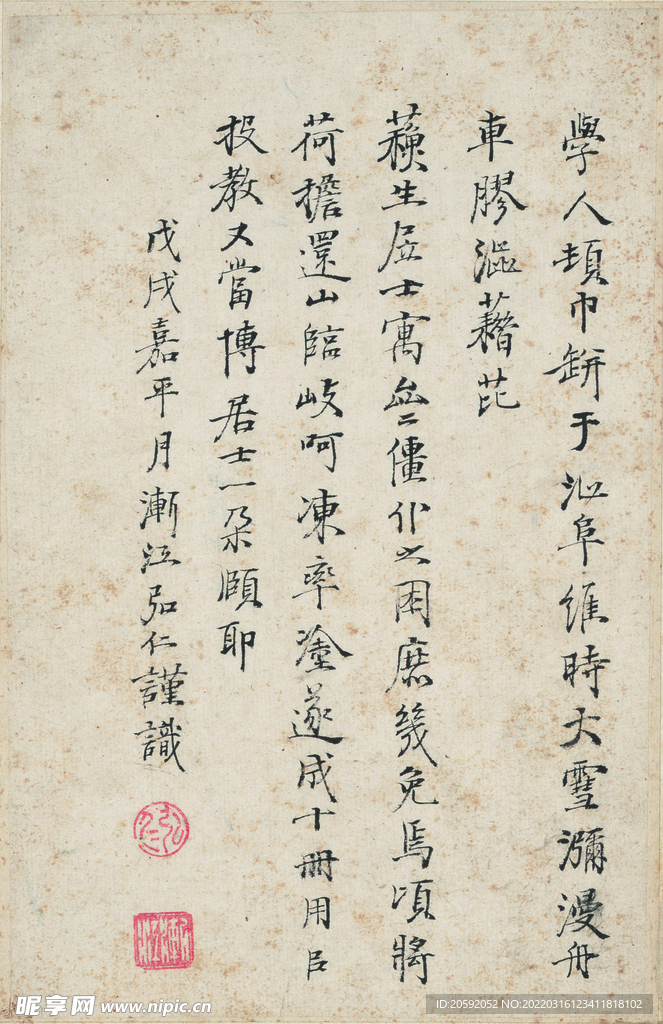 學人頓巾缾于沁阜維時大雪瀰漫舟
車膠澁藉茈
蘋生居士寓無僵仆之困庶幾免焉頃將
荷擔還山臨歧呵凍率塗遂成十冊用㠯
投教又當博居士一朵頤耶
戊戌嘉平月漸江弘仁謹識
弘仁
漸江
昵享网 www.nipic.cn
ID:20592052 NO:20220316123411818102